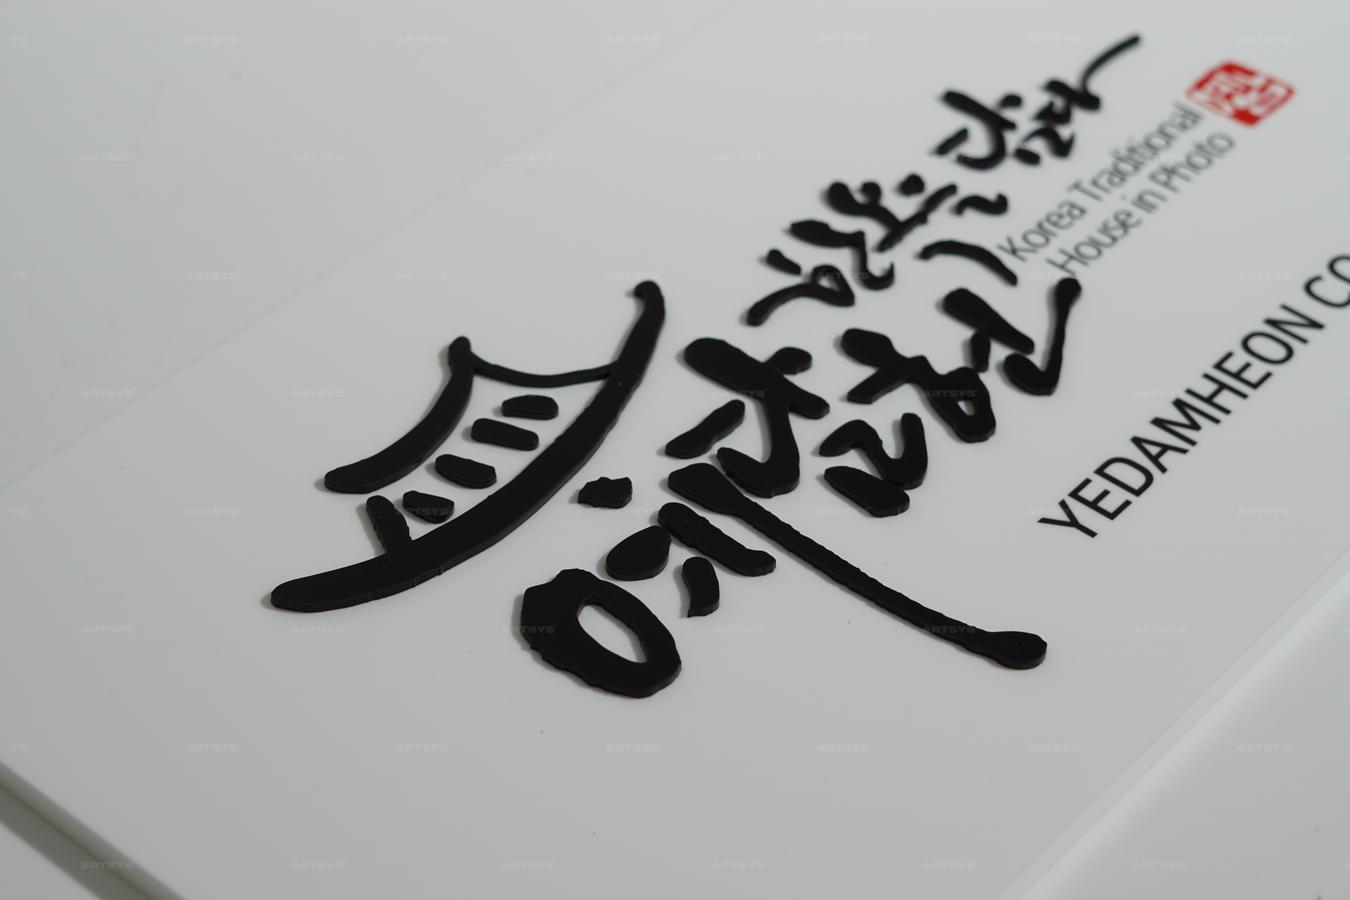 한옥을 담다
예담헌
Korea Traditional
House in Photo
YEDAMHEON CO
ARTSYS